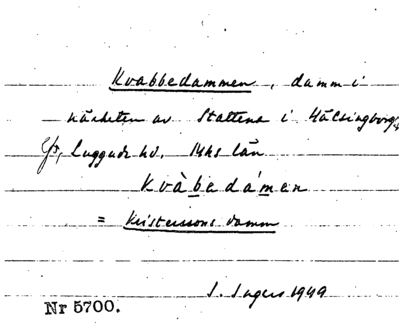 Kvabbedammen, damm i
närheten av Stattena i Hälsingborg,
Luggude hd. Mhs län
Kvàbedámen
= Kristerssons damm
1949
Nr 5700.